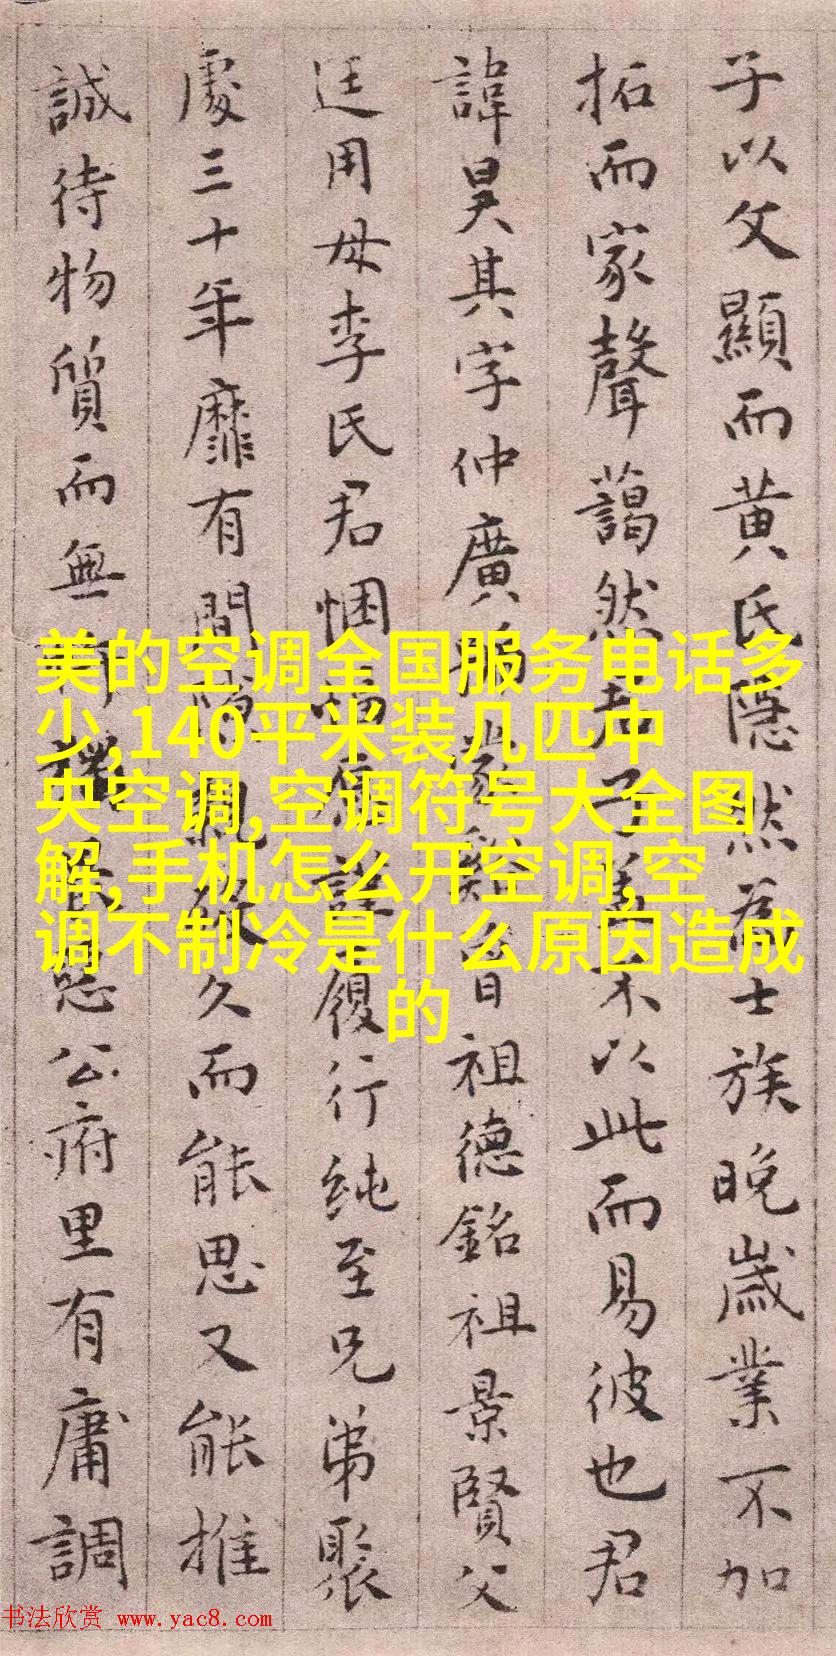 子以父顯而黄氏隱然為士族晚歲業不加
拓而家聲藹然君子蓋不以此而易彼也君
諱昊其字仲廣為豢谿曾祖德銘祖景賢父
廷用母李氏君悃愊履行純至兄弟聚
處三十年靡有間隔久而能思又能推
誠待物質而無公府里有庸調
美的空调全国服务电话多
少,140平米装几匹中
央空调,空调符号大全图
解,手机怎么开空调,空
调不制冷是什么原因造成
的
书法欣赏 www.yac8.com